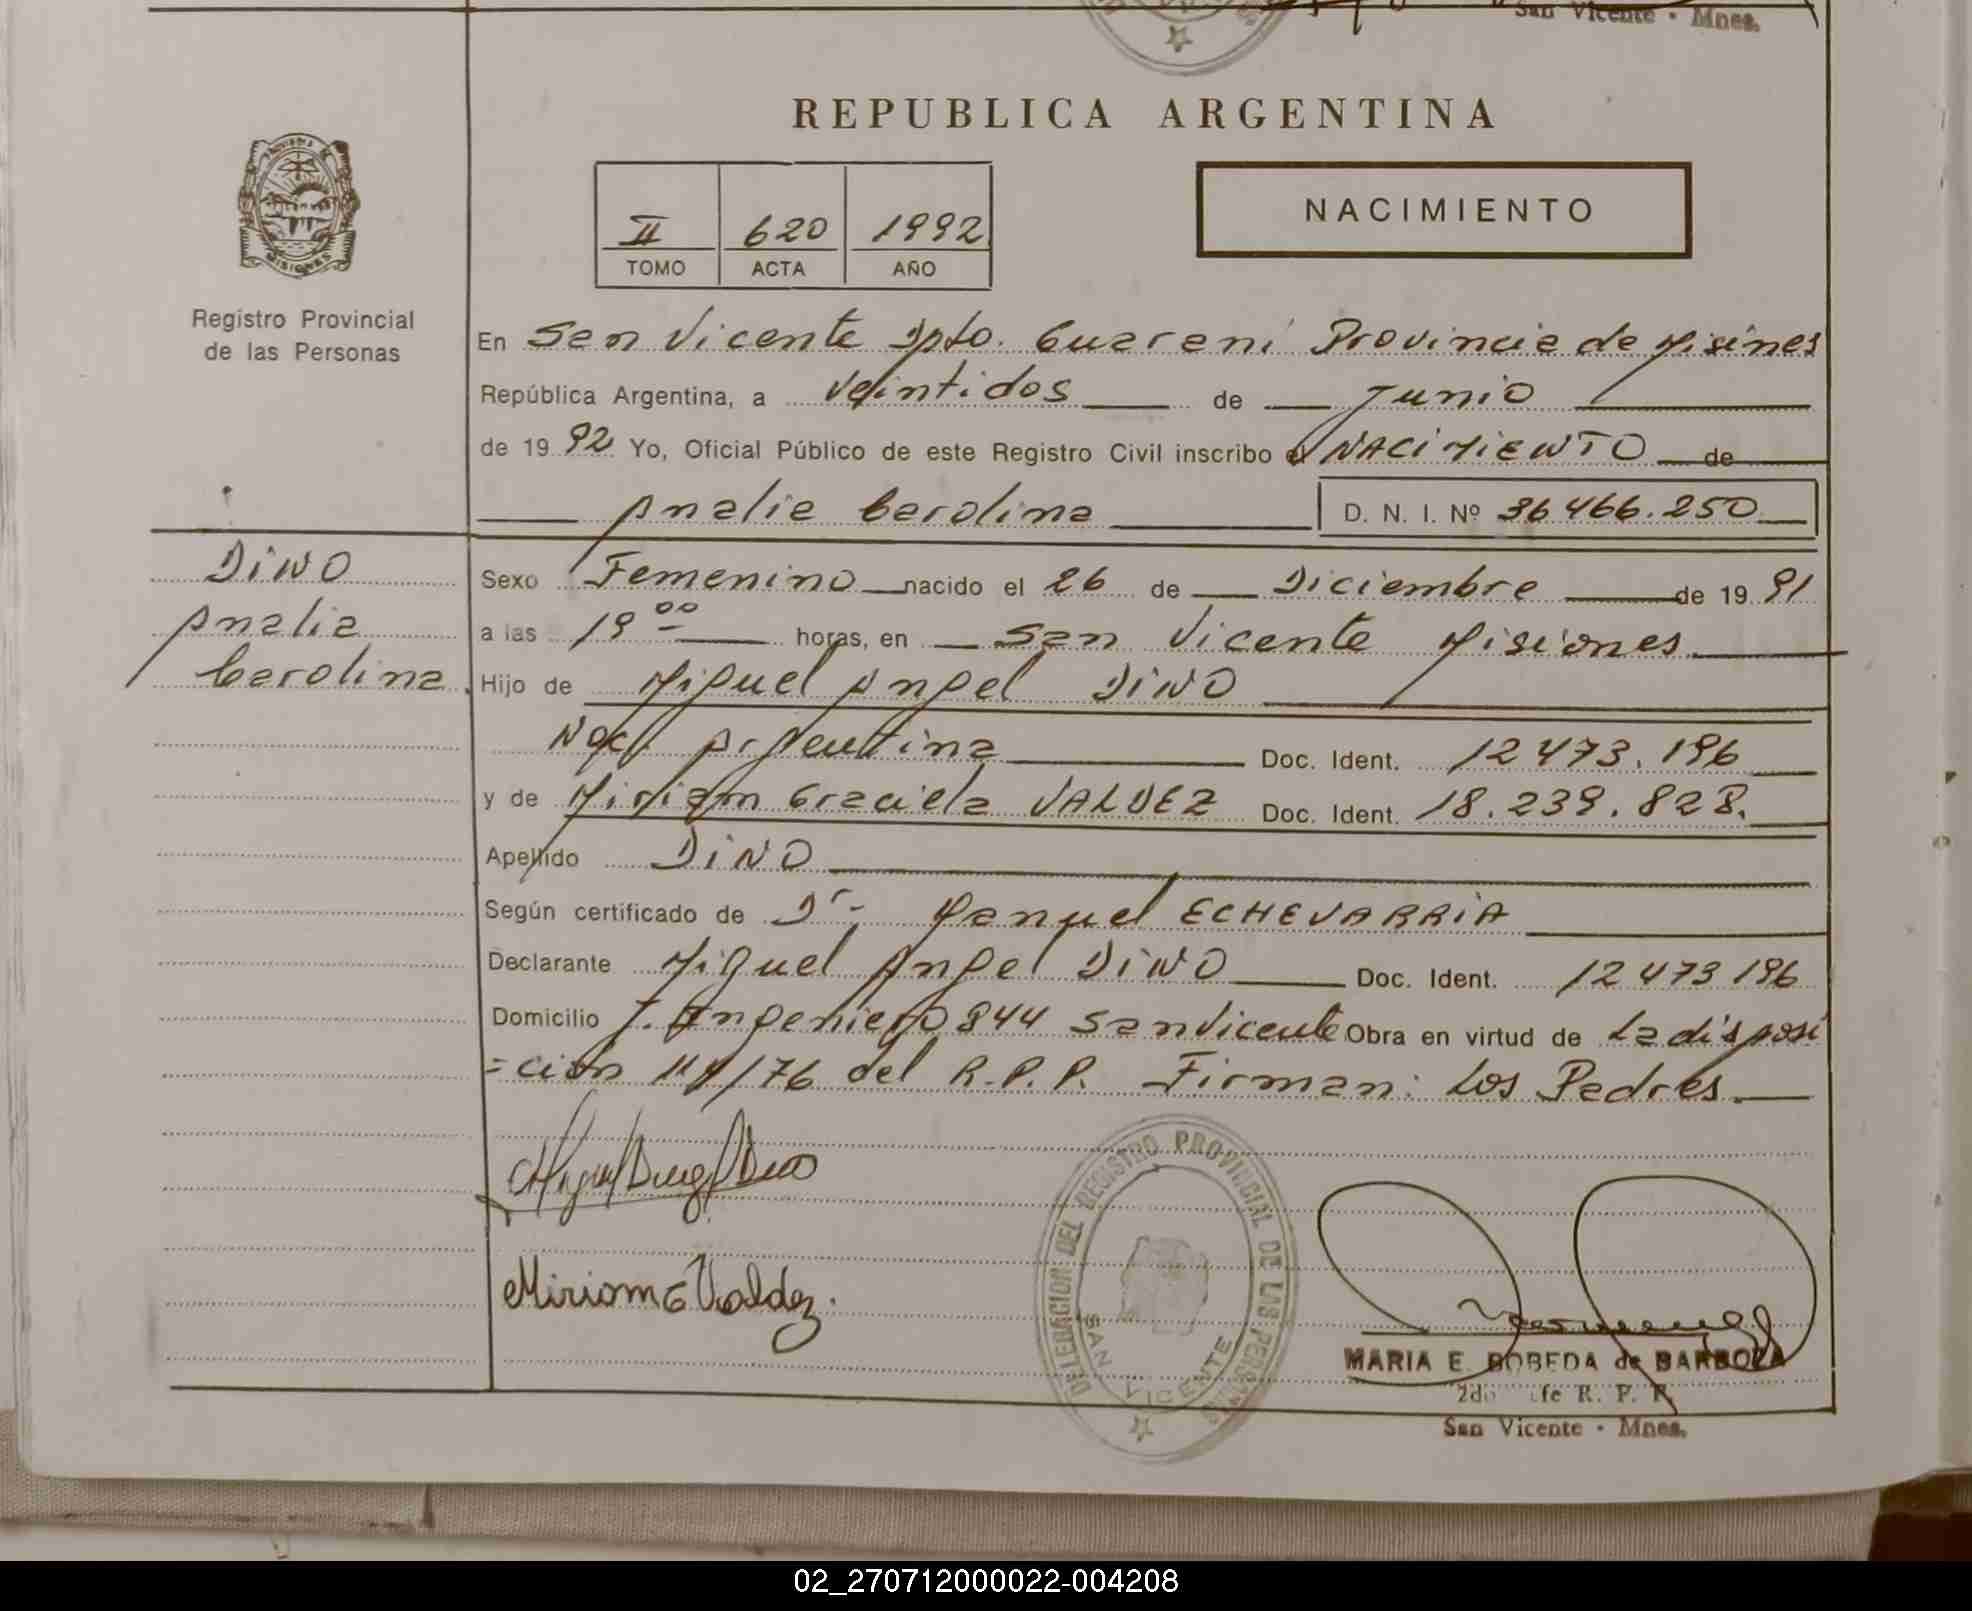 San Vicente - Mnes.
REPUBLICA ARGENTINA
PROVINCIA DE MISIONES
II 620 1992
TOMO ACTA AÑO
NACIMIENTO
Registro Provincial
de las Personas
En San Vicente Dpto. Guarani Provincia de Misiones
República Argentina, a veintidos de Junio
de 1992 Yo, Oficial Público de este Registro Civil inscribo el NACIMIENTO de
Analia Carolina D. N. I. Nº 36 466.250
DINO
Analia
Carolina.
Sexo Femenino nacido el 26 de Diciembre de 1991
a las 19 00 horas, en San Vicente Misiones.
Hijo de Miguel Angel DINO
Nac. Argentina Doc. Ident. 12 473.196
y de Miriam Graciela VALDEZ Doc. Ident. 18.239.828.
Apellido DINO
Según certificado de Dr- Manuel ECHEVARRIA
Declarante Miguel Angel DINO Doc. Ident. 12 473 196
Domicilio J. Ingeniero 844 San Vicente Obra en virtud de La disposi
=ción 111/76 del R.P.P. Firman: Los Padres.
Miguel Angel Dino
Miriam G Valdez.
DELEGACION DEL REGISTRO PROVINCIAL DE LAS PERSONAS
SAN VICENTE
MARIA E. BOBEDA de BARBOZA
2do Jefe R. P. P.
San Vicente - Mnes.
02_270712000022-004208